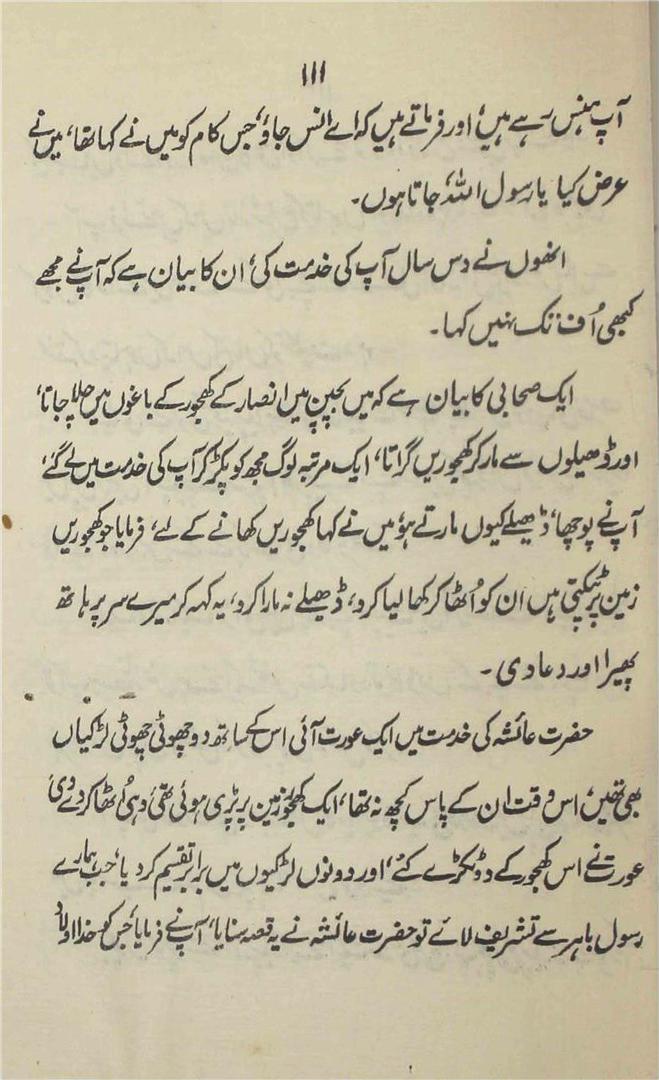 ۱۱۱
آپ ہنس رہے ہیں، اور فرماتے ہیں کہ اے انس جاؤ، جس کام کو میں نے کہا تھا، میں نے
عرض کیا یا رسول اللہ، جاتا ہوں۔
انھوں نے دس سال آپ کی خدمت کی، ان کا بیان ہے کہ آپ نے مجھے
کبھی اُف تک نہیں کہا۔
ایک صحابی کا بیان ہے کہ میں بچپن میں انصار کے کھجور کے باغوں میں چلا جاتا،
اور ڈھیلوں سے مار کر کھجوریں گراتا، ایک مرتبہ لوگ مجھ کو پکڑ کر آپ کی خدمت میں لے گئے،
آپ نے پوچھا، ڈھیلے کیوں مارتے ہو، میں نے کہا کھجوریں کھانے کے لئے، فرمایا جو کھجوریں
زمین پر ٹپکتی ہیں ان کو اُٹھا کر کھا لیا کرو، ڈھیلے نہ مارا کرو، یہ کہہ کر میرے سر پر ہاتھ
پھیرا اور دعا دی۔
حضرت عائشہ کی خدمت میں ایک عورت آئی اس کے ساتھ دو چھوٹی چھوٹی لڑکیاں
بھی تھیں، اس وقت ان کے پاس کچھ نہ تھا، ایک کھجور زمین پر پڑی ہوئی تھی، وہی اُٹھا کر دے دی،
عورت نے اس کھجور کے دو ٹکڑے کئے، اور دونوں لڑکیوں میں برابر تقسیم کر دیا، جب ہمارے
رسول باہر سے تشریف لائے تو حضرت عائشہ نے یہ قصہ سنایا، آپ نے فرمایا، جس کو خدا اولاد